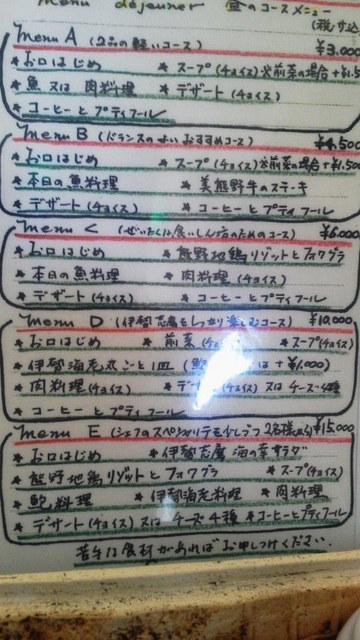 Menu déjeuner 昼のコースメニュー
(税サ込
Menu A (2品の軽いコース) ¥3,000
* お口はじめ * スープ(チョイス)※前菜の場合+¥1,50
* 魚又は肉料理 * デザート(チョイス)
* コーヒーとプティフール
Menu B (バランスのよいおすすめコース) ¥4,500
* お口はじめ * スープ(チョイス)※前菜の場合+¥1,500
* 本日の魚料理 * 美熊野牛のステーキ
* デザート(チョイス) * コーヒーとプティフール
Menu C (ぜいたくな食いしん坊のためのコース) ¥6,000
* お口はじめ * 熊野地鶏リゾットとフォワグラ
* 本日の魚料理 * 肉料理(チョイス)
* デザート(チョイス) * コーヒーとプティフール
Menu D (伊勢志摩をしっかり楽しむコース) ¥10,000
* お口はじめ * 前菜(チョイス) * スープ(チョイス)
* 伊勢海老丸ごと1皿 は +¥1,000)
* 肉料理(チョイス) * デザート(チョイス)又はチーズ4種
* コーヒーとプティフール
Menu E (シェフのスペシャリテを少しづつ 2名様より) ¥15,000
* お口はじめ * 伊勢志摩 海の幸サラダ
* 熊野地鶏リゾットとフォワグラ * スープ(チョイス)
* 鮑料理 * 伊勢海老料理 * 肉料理
* デザート(チョイス)又はチーズ4種 * コーヒーとプティフール
苦手な食材があればお申しつけください.